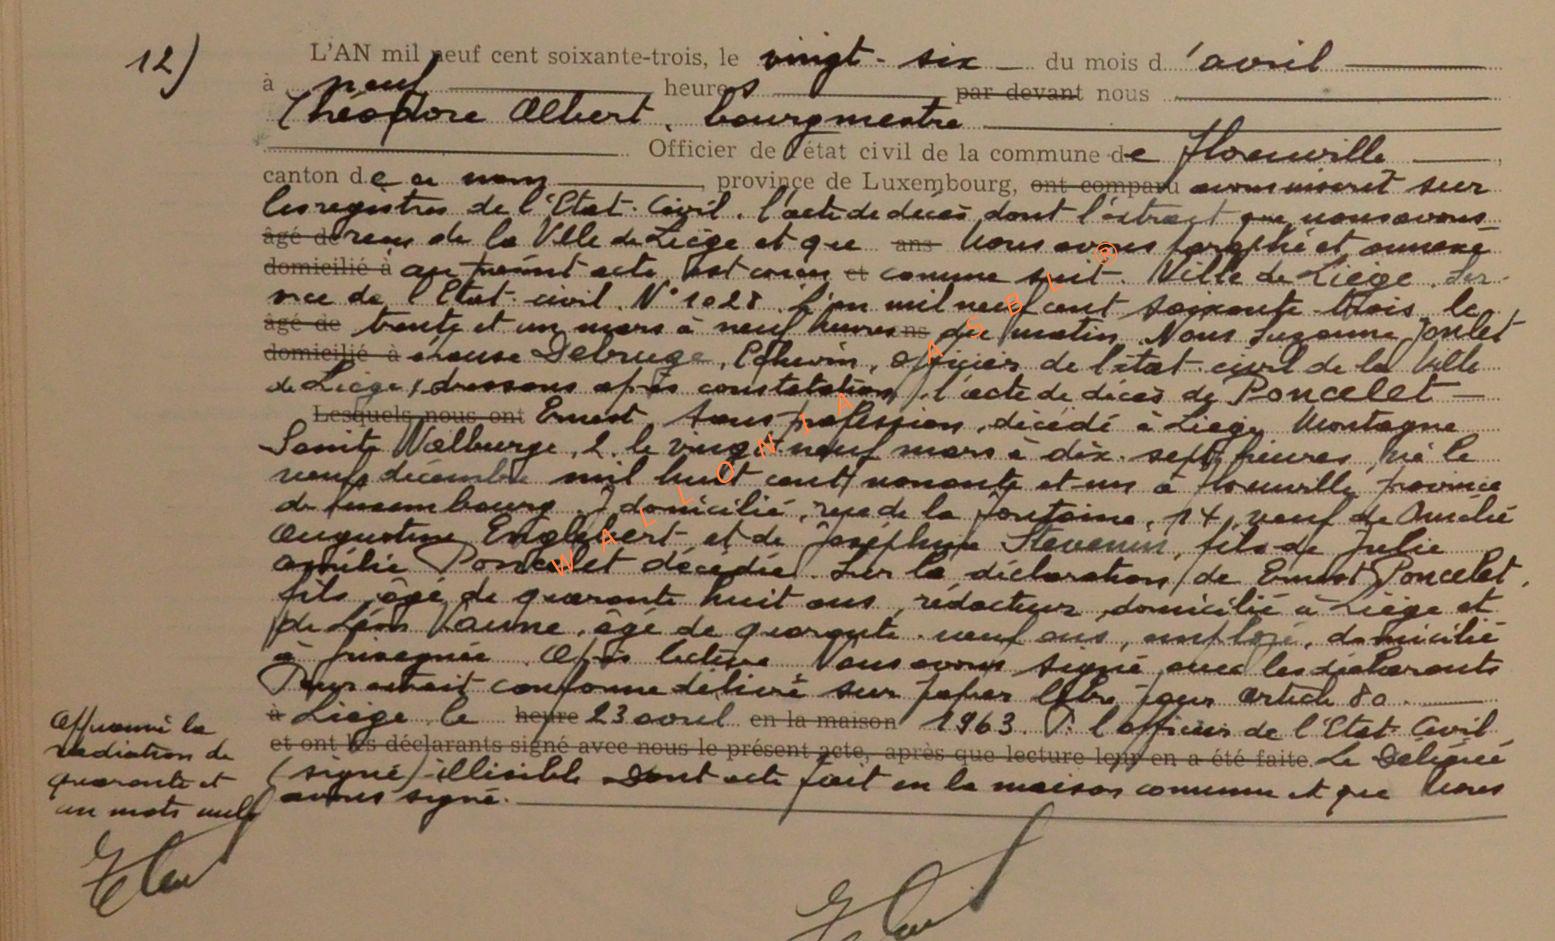 12) L'AN mil neuf cent soixante-trois, le vingt-six du mois d'avril
à neuf heures par devant nous
Théodore Albert, bourgmestre
Officier de l'état civil de la commune de Florenville,
canton de ce nom, province de Luxembourg, ont comparu avons inscrit sur
les registres de l'Etat-Civil, l'acte de décès dont l'extrait que nous avons
âgé de reçu de la Ville de Liège et que ans Nous avons paraphé et annexé
domicilié à au présent acte, est conçu et comme suit. Ville de Liège. Ser-
vice de l'Etat-civil. N° 1028. L'an mil neuf cent soixante-trois, le
âgé de trente et un mars à neuf heures ans du matin, Nous Suzanne Joulet
domicilié à épouse Debruge, Echevin, officier de l'état-civil de la Ville
de Liège, dressons après constatation, l'acte de décès de Poncelet
Lesquels nous ont Ernest sans profession, décédé à Liège, Montagne
Sainte Walburge, 2, le vingt-neuf mars à dix-sept heures, né le
neuf décembre mil huit cent nonante et un à Florenville province
de Luxembourg, domicilié, rue de la Fontaine, 14, veuf de Amélie
Augustine Englebert et de Joséphine Stevenin, fils de Julie
Amélie Poncelet décédée. Sur la déclaration de Ernest Poncelet,
fils, âgé de quarante huit ans, rédacteur, domicilié à Liège et
de Léon Vaume, âgé de quarante-neuf ans, employé, domicilié
à Jupille. Après lecture Nous avons signé avec les déclarants
Pour extrait conforme délivré sur papier libre pour article 80
à Liège, le heure 23 avril en la maison 1963. P. l'officier de l'Etat-Civil
et ont les déclarants signé avec nous le présent acte, après que lecture leur en a été faite. Le Délégué
(signé) illisible Dont acte fait en la maison commune et que Nous
avons signé.
Approuvé la
radiation de
quarante et
un mots nuls
WALLONIA ASBL ®